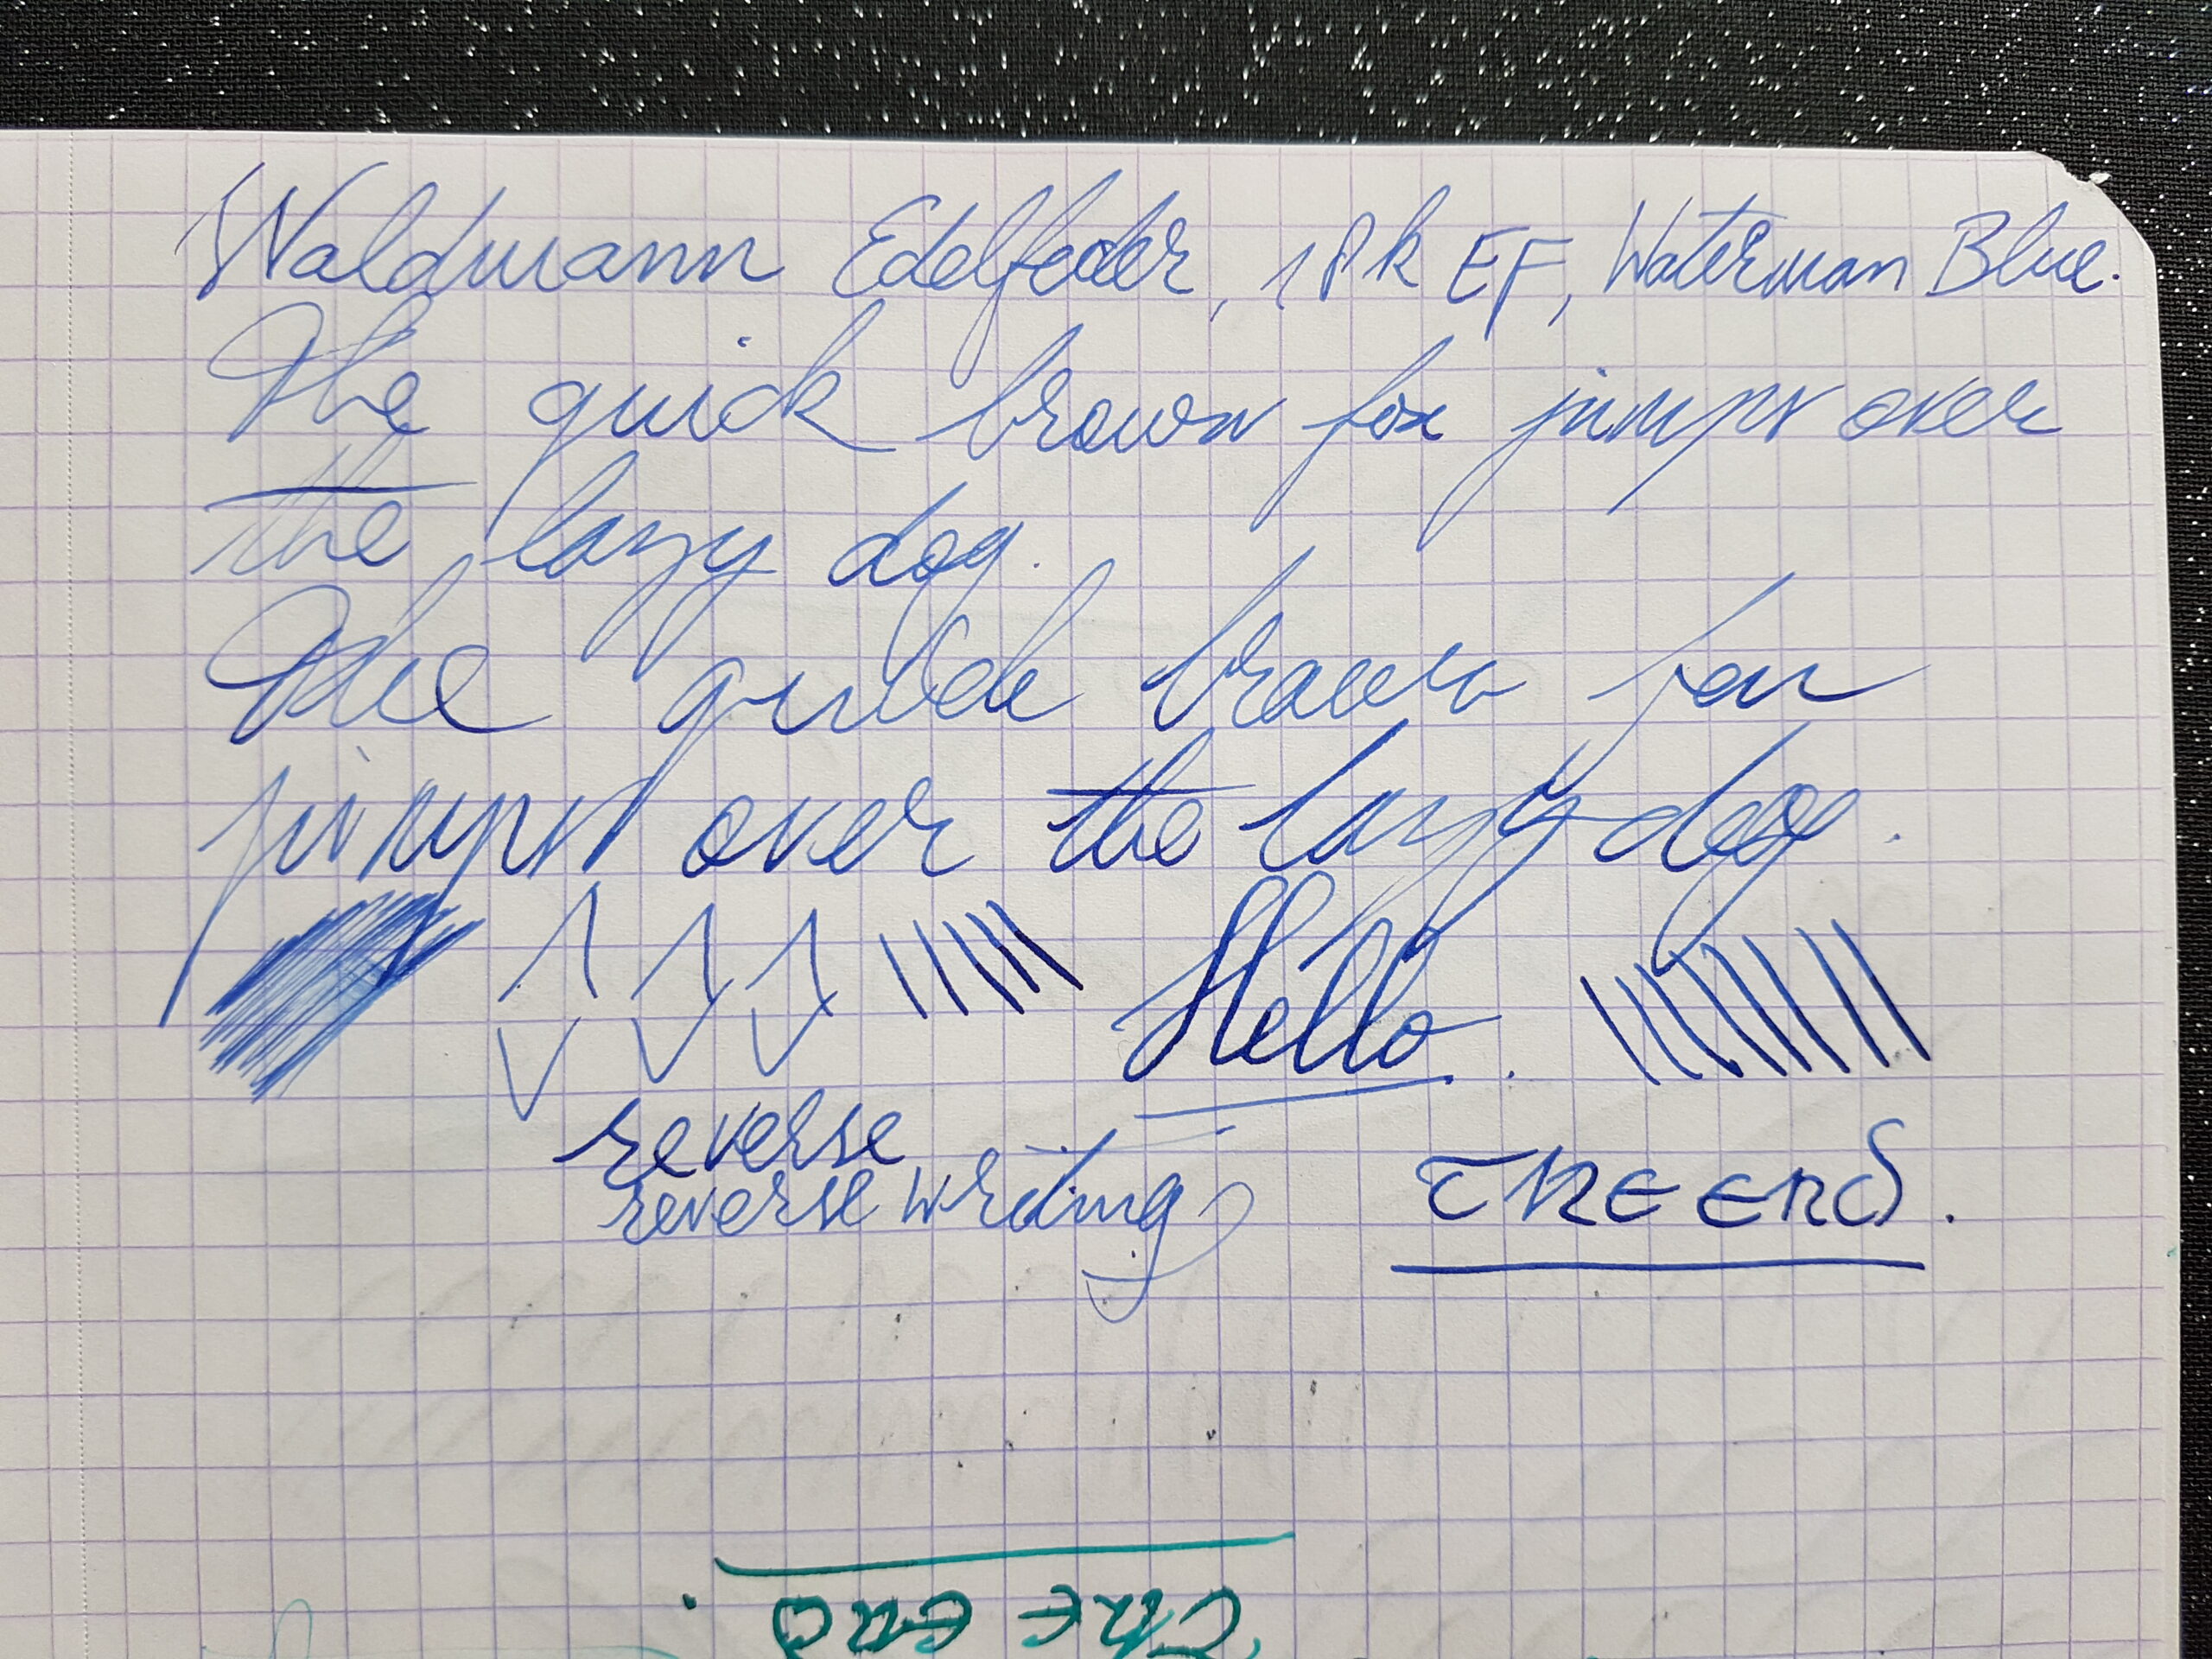 Waldmann Edelfeder, 18k EF, Waterman Blue.
The quick brown fox jumps over
the lazy dog.
The quick brown fox
jumps over the lazy dog.
Hello.
reverse
reverse writing
THE END.
THE END.